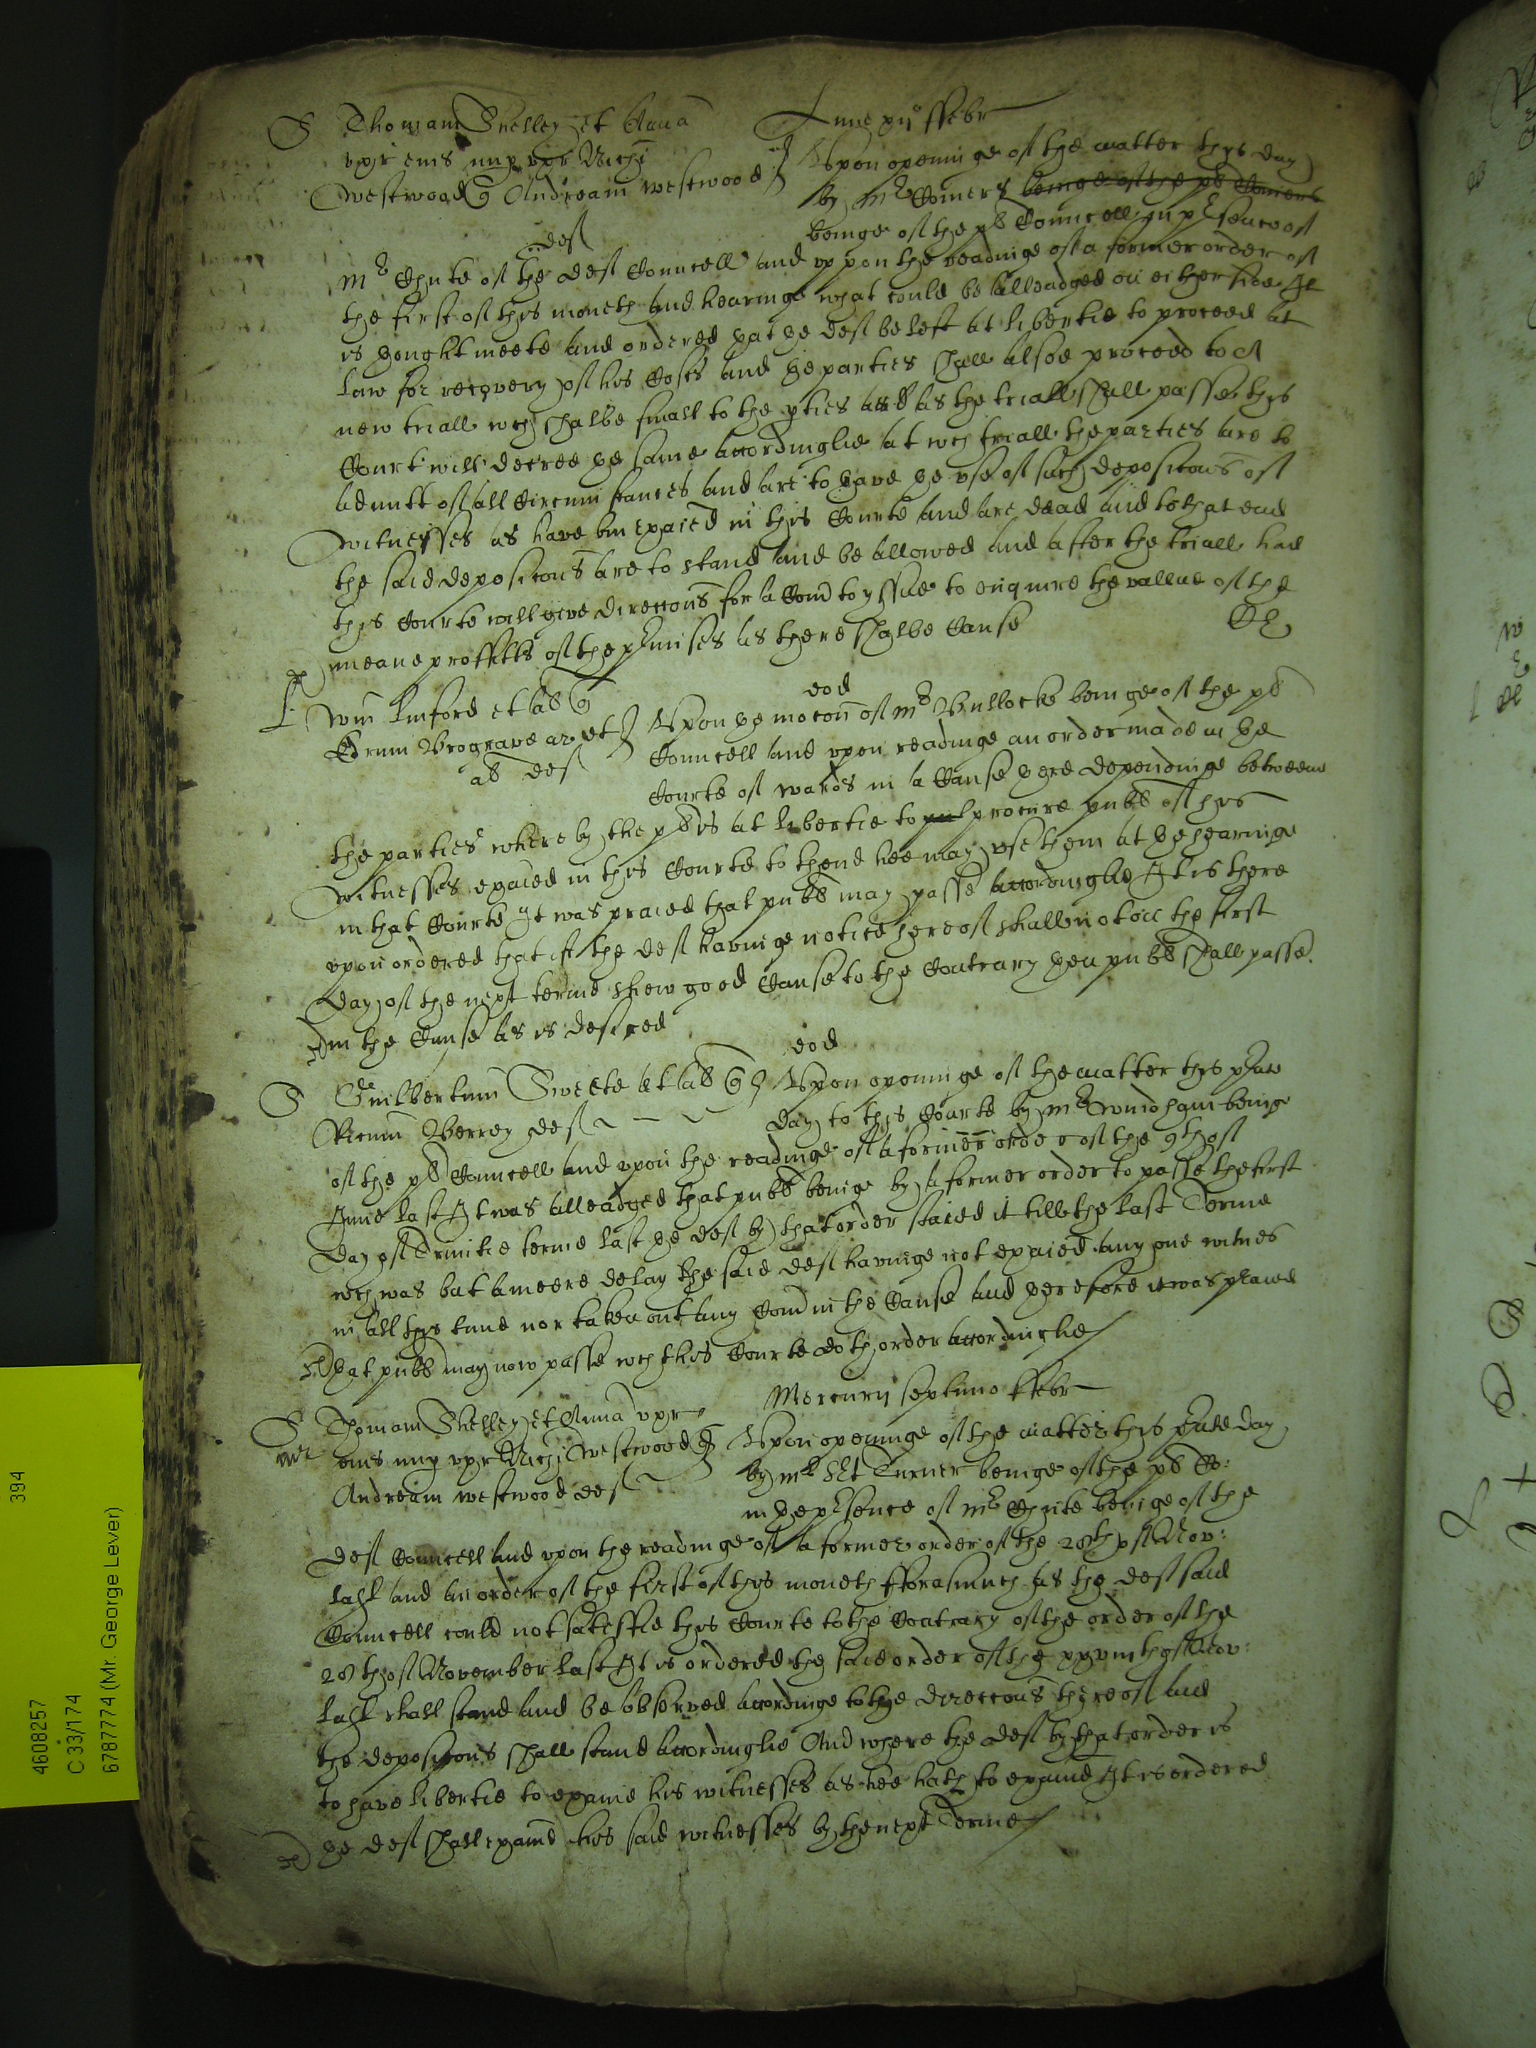 S Thomam Shelley et Anna
uxor eius nup uxr Nichi
Westwood q Andream Westwood
def
Lune xii° ffebr
Upon openinge of the matter thys day
by Mr Comers beinge of the pl Comers
beinge of the pl Councell in pñsence of
Mr Chute of the def Councell and uppon the readinge of a former order of
the first of thys moneth and hearinge what could be alleadged on either side It
is thought meete and ordered that the def be left at libertie to proceed at
law for recovery of his Costs and the parties shall alsoe proceed to a
new triall wch shalbe finall to the pties and as the triall shall passe thys
Court will decree the same accordinglie at wch triall the parties are to
admitt of all Circumstances and are to have the use of such deposicons of
witnesses as have bin exaied in thys Courte and are dead and to that end
the said deposicons are to stand and be allowed and after the triall had
thys Courte will give direccons for a Comd to yssue to enquire the vallue of the
meane proffitts of the pmises as there shalbe Cause
L Wm Linford et al q
Edrum Brograve ar et
al def
eod
Upon the mocon of Mr Bullocke beinge of the pl
Councell and upon readinge an order made in the
Courte of wards in a Cause there dependinge betweene
the parties whereby the pl is at libertie to pul procure publ of hys
witnesses exaied in thys Courte to thend hee may use them at the hearinge
in that Courte It was praied that publ may passe accordinglie It is there
upon ordered that if the def havinge notice hereof shall not on the first
day of the next terme shew good Cause to the Contrary then publ shall passe
in the Cause as is desired
S Guilbertum Sweete et al q
Ricum Berrey def
eod
Upon openinge of the matter thys pñte
day to thys Courte by Mr Windham beinge
of the pl Councell and upon the readinge of a former order of the 9th of
June last It was alleadged that publ beinge by a former order to passe the first
day of Trinitie terme last the def by that order staied it till the last Terme
wch was but a meere delay the said def havinge not exaied any one witnes
in all thys time nor taken out any Comd in the Cause and therefore it was praied
that publ may now passe wch thys Courte doth order accordinglie
S Thomam Shelley et Anna uxr
eius nup uxr Nichi Westwood q
Andream Westwood def
Mercurij septimo ffebr
Upon openinge of the matter thys pñte day
by Mr Sñt Turner beinge of the pl Co:
in the pñsence of Mr Chute beinge of the
def Councell and upon the readinge of a former order of the 28th of Nov:
last and an order of the first of thys moneth fforasmuch as the def said
Councell could not satisfie thys Courte to the Contrary of the order of the
28th of November last It is ordered the said order of the xxviiith of Nov:
last shall stand and be observed accordinge to the direccons thereof and
the deposicons shall stand accordinglie And where the def by that order is
to have libertie to exaie his witnesses as hee hath to exaied It is ordered
the def shall exaied his said witnesses by the next Terme
394
4608257
C 33/174
6787774 (Mr. George Lever)